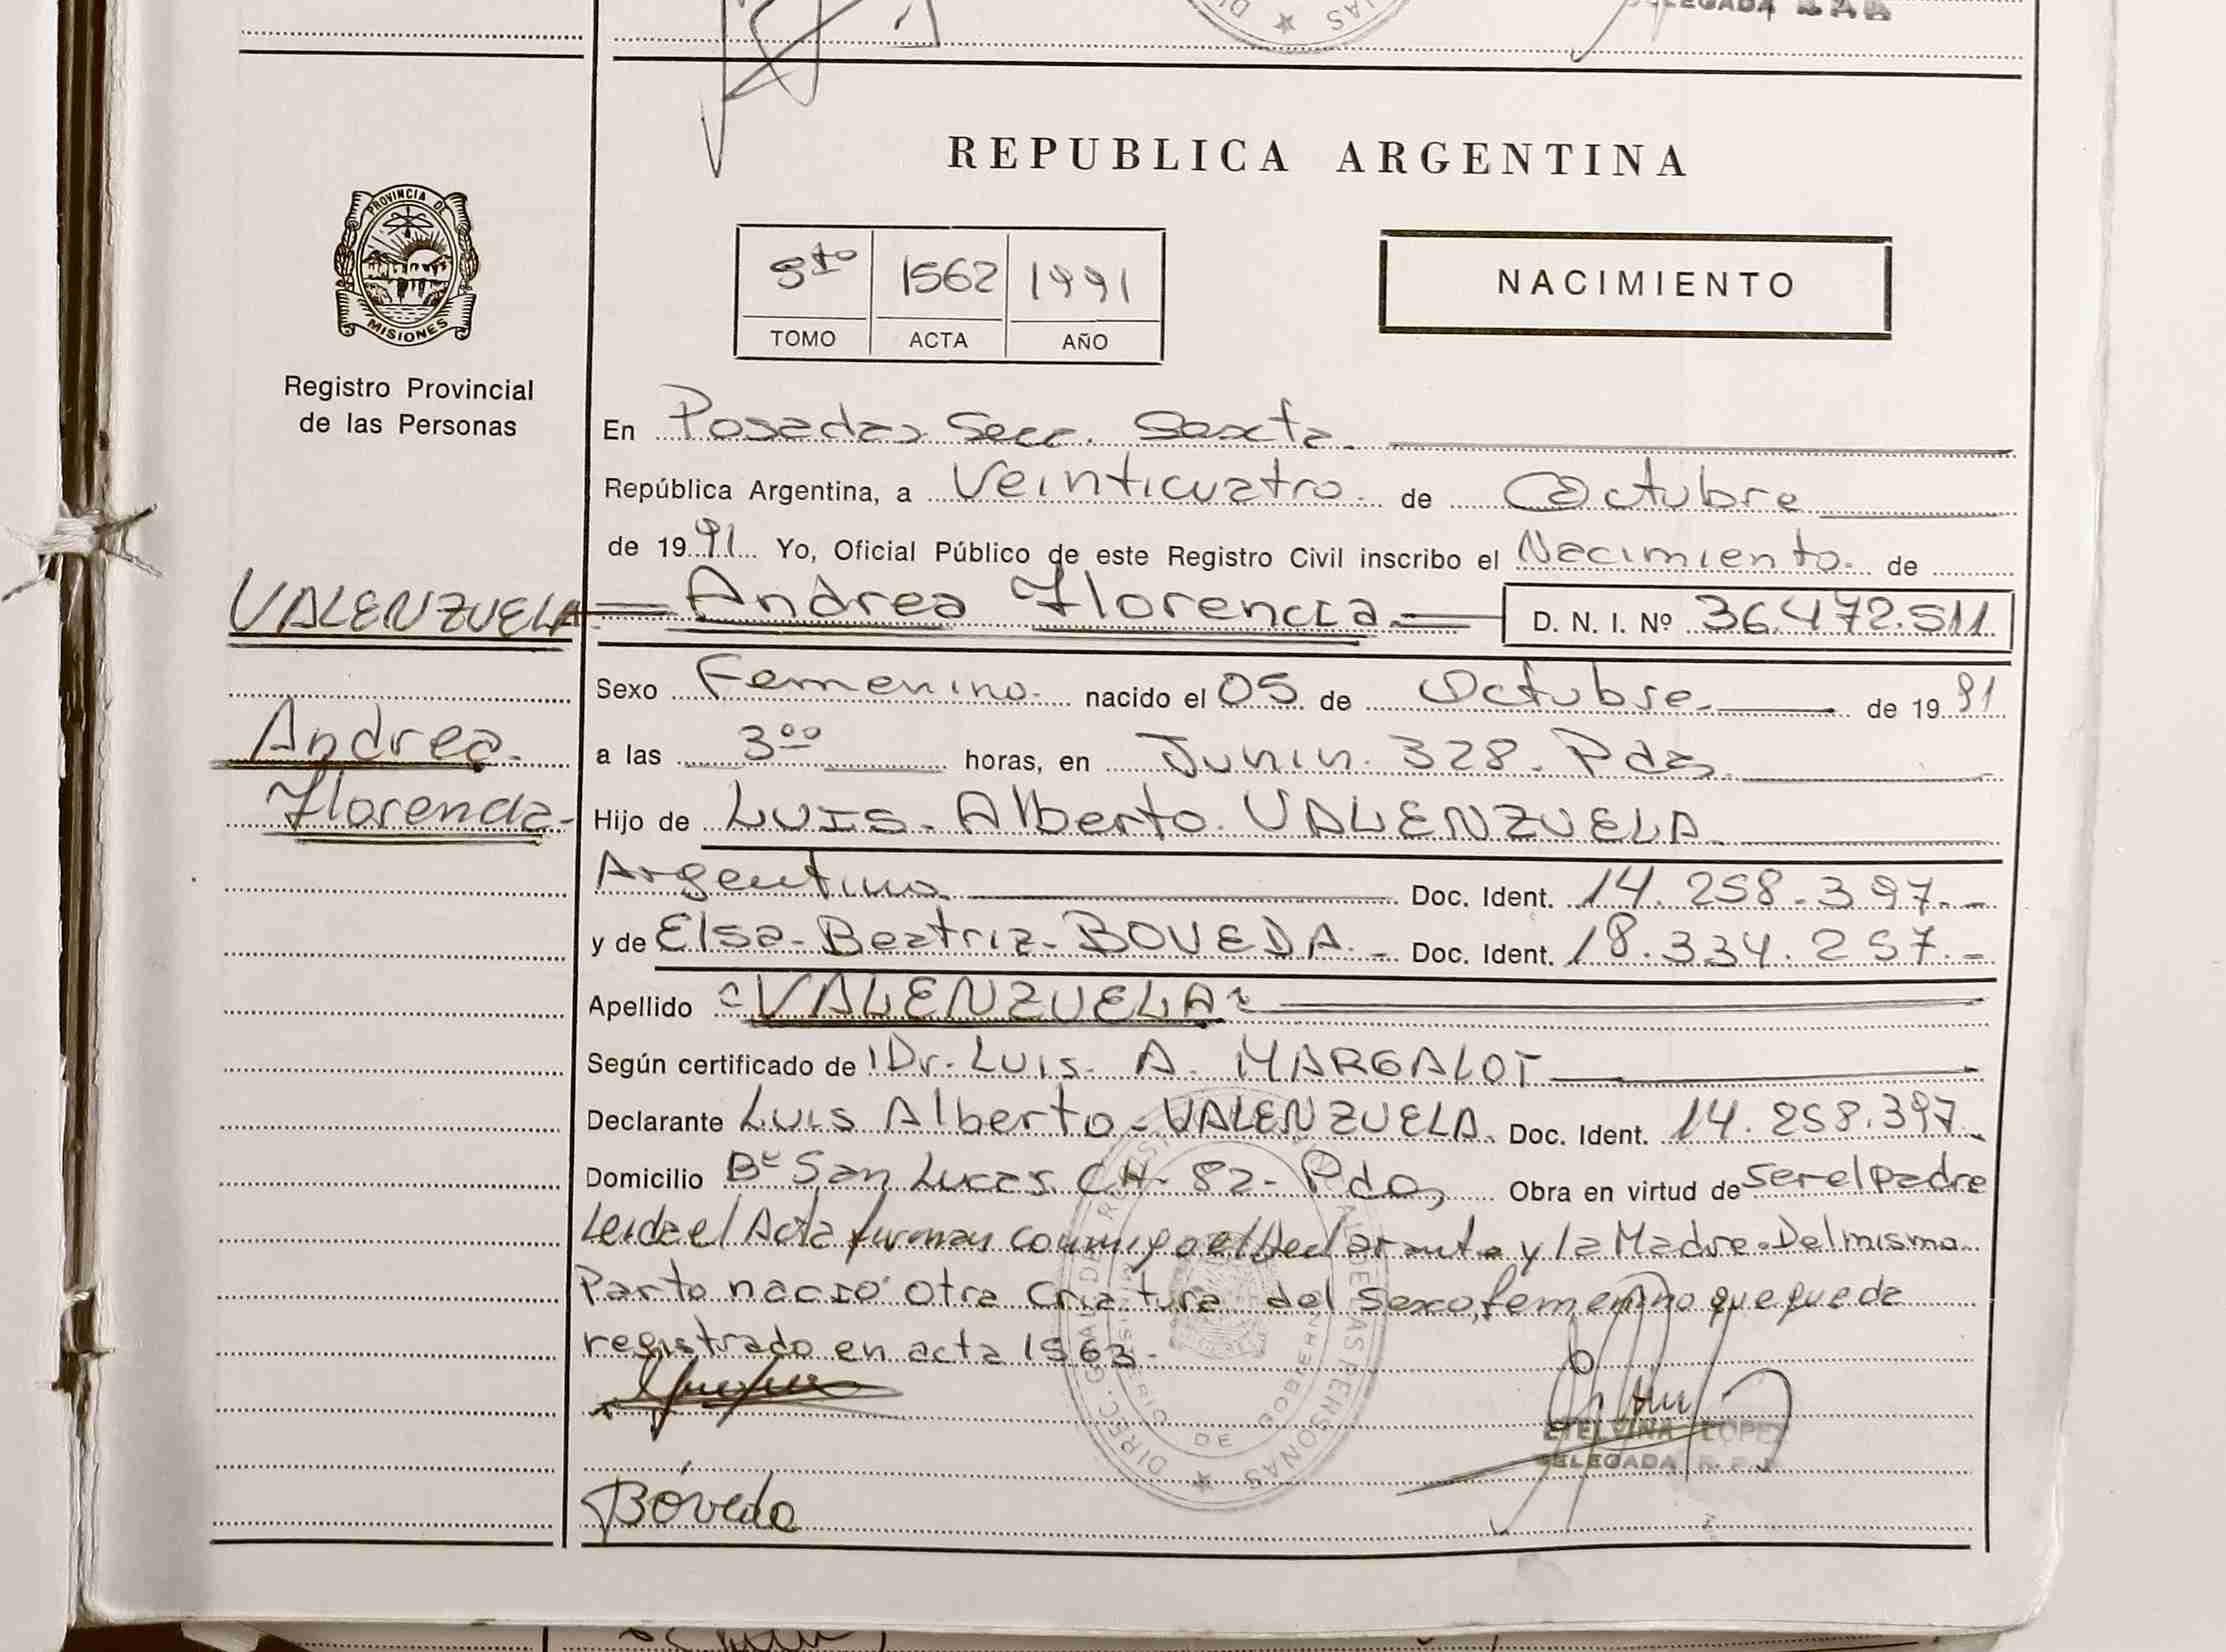 DELEGADA R.P.P.
REPUBLICA ARGENTINA
PROVINCIA DE
MISIONES
Registro Provincial
de las Personas
5to 1562 1991
TOMO ACTA AÑO
NACIMIENTO
En Posadas Secc. Sexta.
República Argentina, a Veinticuatro. de Octubre
de 1991 Yo, Oficial Público de este Registro Civil inscribo el Nacimiento. de
VALENZUELA Andrea Florencia D. N. I. Nº 36.472.511
Sexo Femenino. nacido el 05 de Octubre. de 1991
Andrea
Florencia
a las 3ºº horas, en Junin. 328. Pdas.
Hijo de Luis. Alberto. VALENZUELA
Argentino Doc. Ident. 14.258.397.-
y de Elsa-Beatriz-BOVEDA.- Doc. Ident. 18.334.257.-
Apellido VALENZUELA
Según certificado de Dr. Luis. A. MARGALOT
Declarante Luis Alberto-VALENZUELA. Doc. Ident. 14.258.397.
Domicilio Bº San Lucas CH. 82- Pdas, Obra en virtud de ser el padre
Leida el Acta firman conmigo el Declarante y la Madre. Del mismo
Parto nacio otra Criatura del sexo femenino que queda
registrado en acta 1563.-
ETELVINA LOPEZ
DELEGADA R.P.P.
DIREC. GRAL DE
DE LAS PERSONAS
DE GOBIERNO
Bóveda